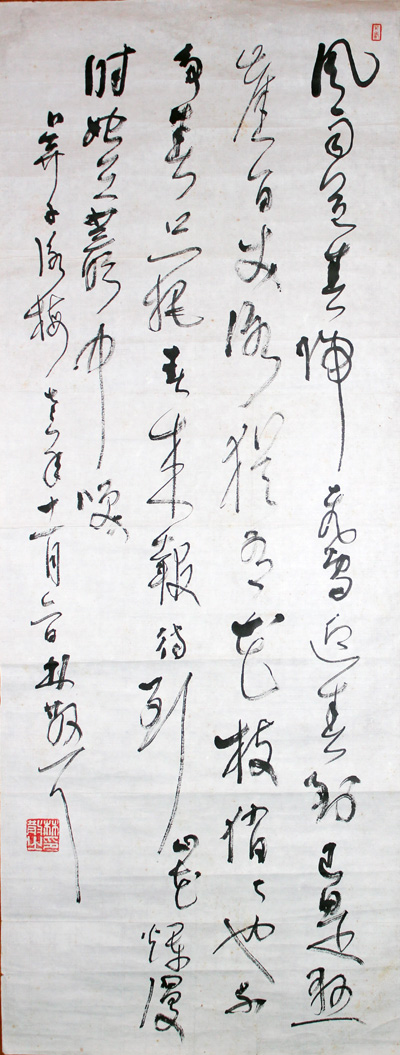 风雨送春归飞雪迎春到已是悬
崖百丈冰猶有花枝俏俏也不
争春只把春来報待到山花爛漫
时她在叢中咲
卜算子咏梅 年十一月 日林散之